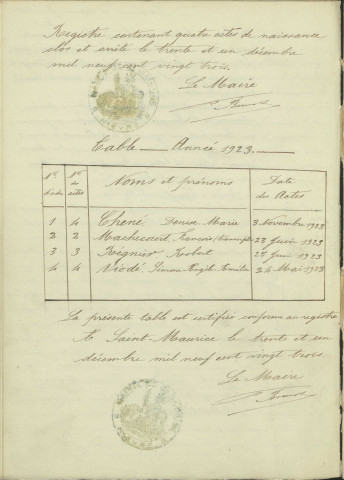 Registre contenant quatre actes de naissance
clos et arrêté le trente et un décembre
mil neuf cent vingt trois.
Le Maire
Table — Année 1923.
Nos d'ordre Nos des actes Noms et prénoms Date des Actes
1 4 Chené Denise Marie 3 Novembre 1923
2 2 Machecourt François 23 Juin 1923
3 3 Régnier Robert 25 Juin 1923
4 Niodé Simone 24 Mai 1923
La présente table est certifiée conforme au registre
Saint-Maurice le trente et un
décembre mil neuf cent vingt trois
Le Maire